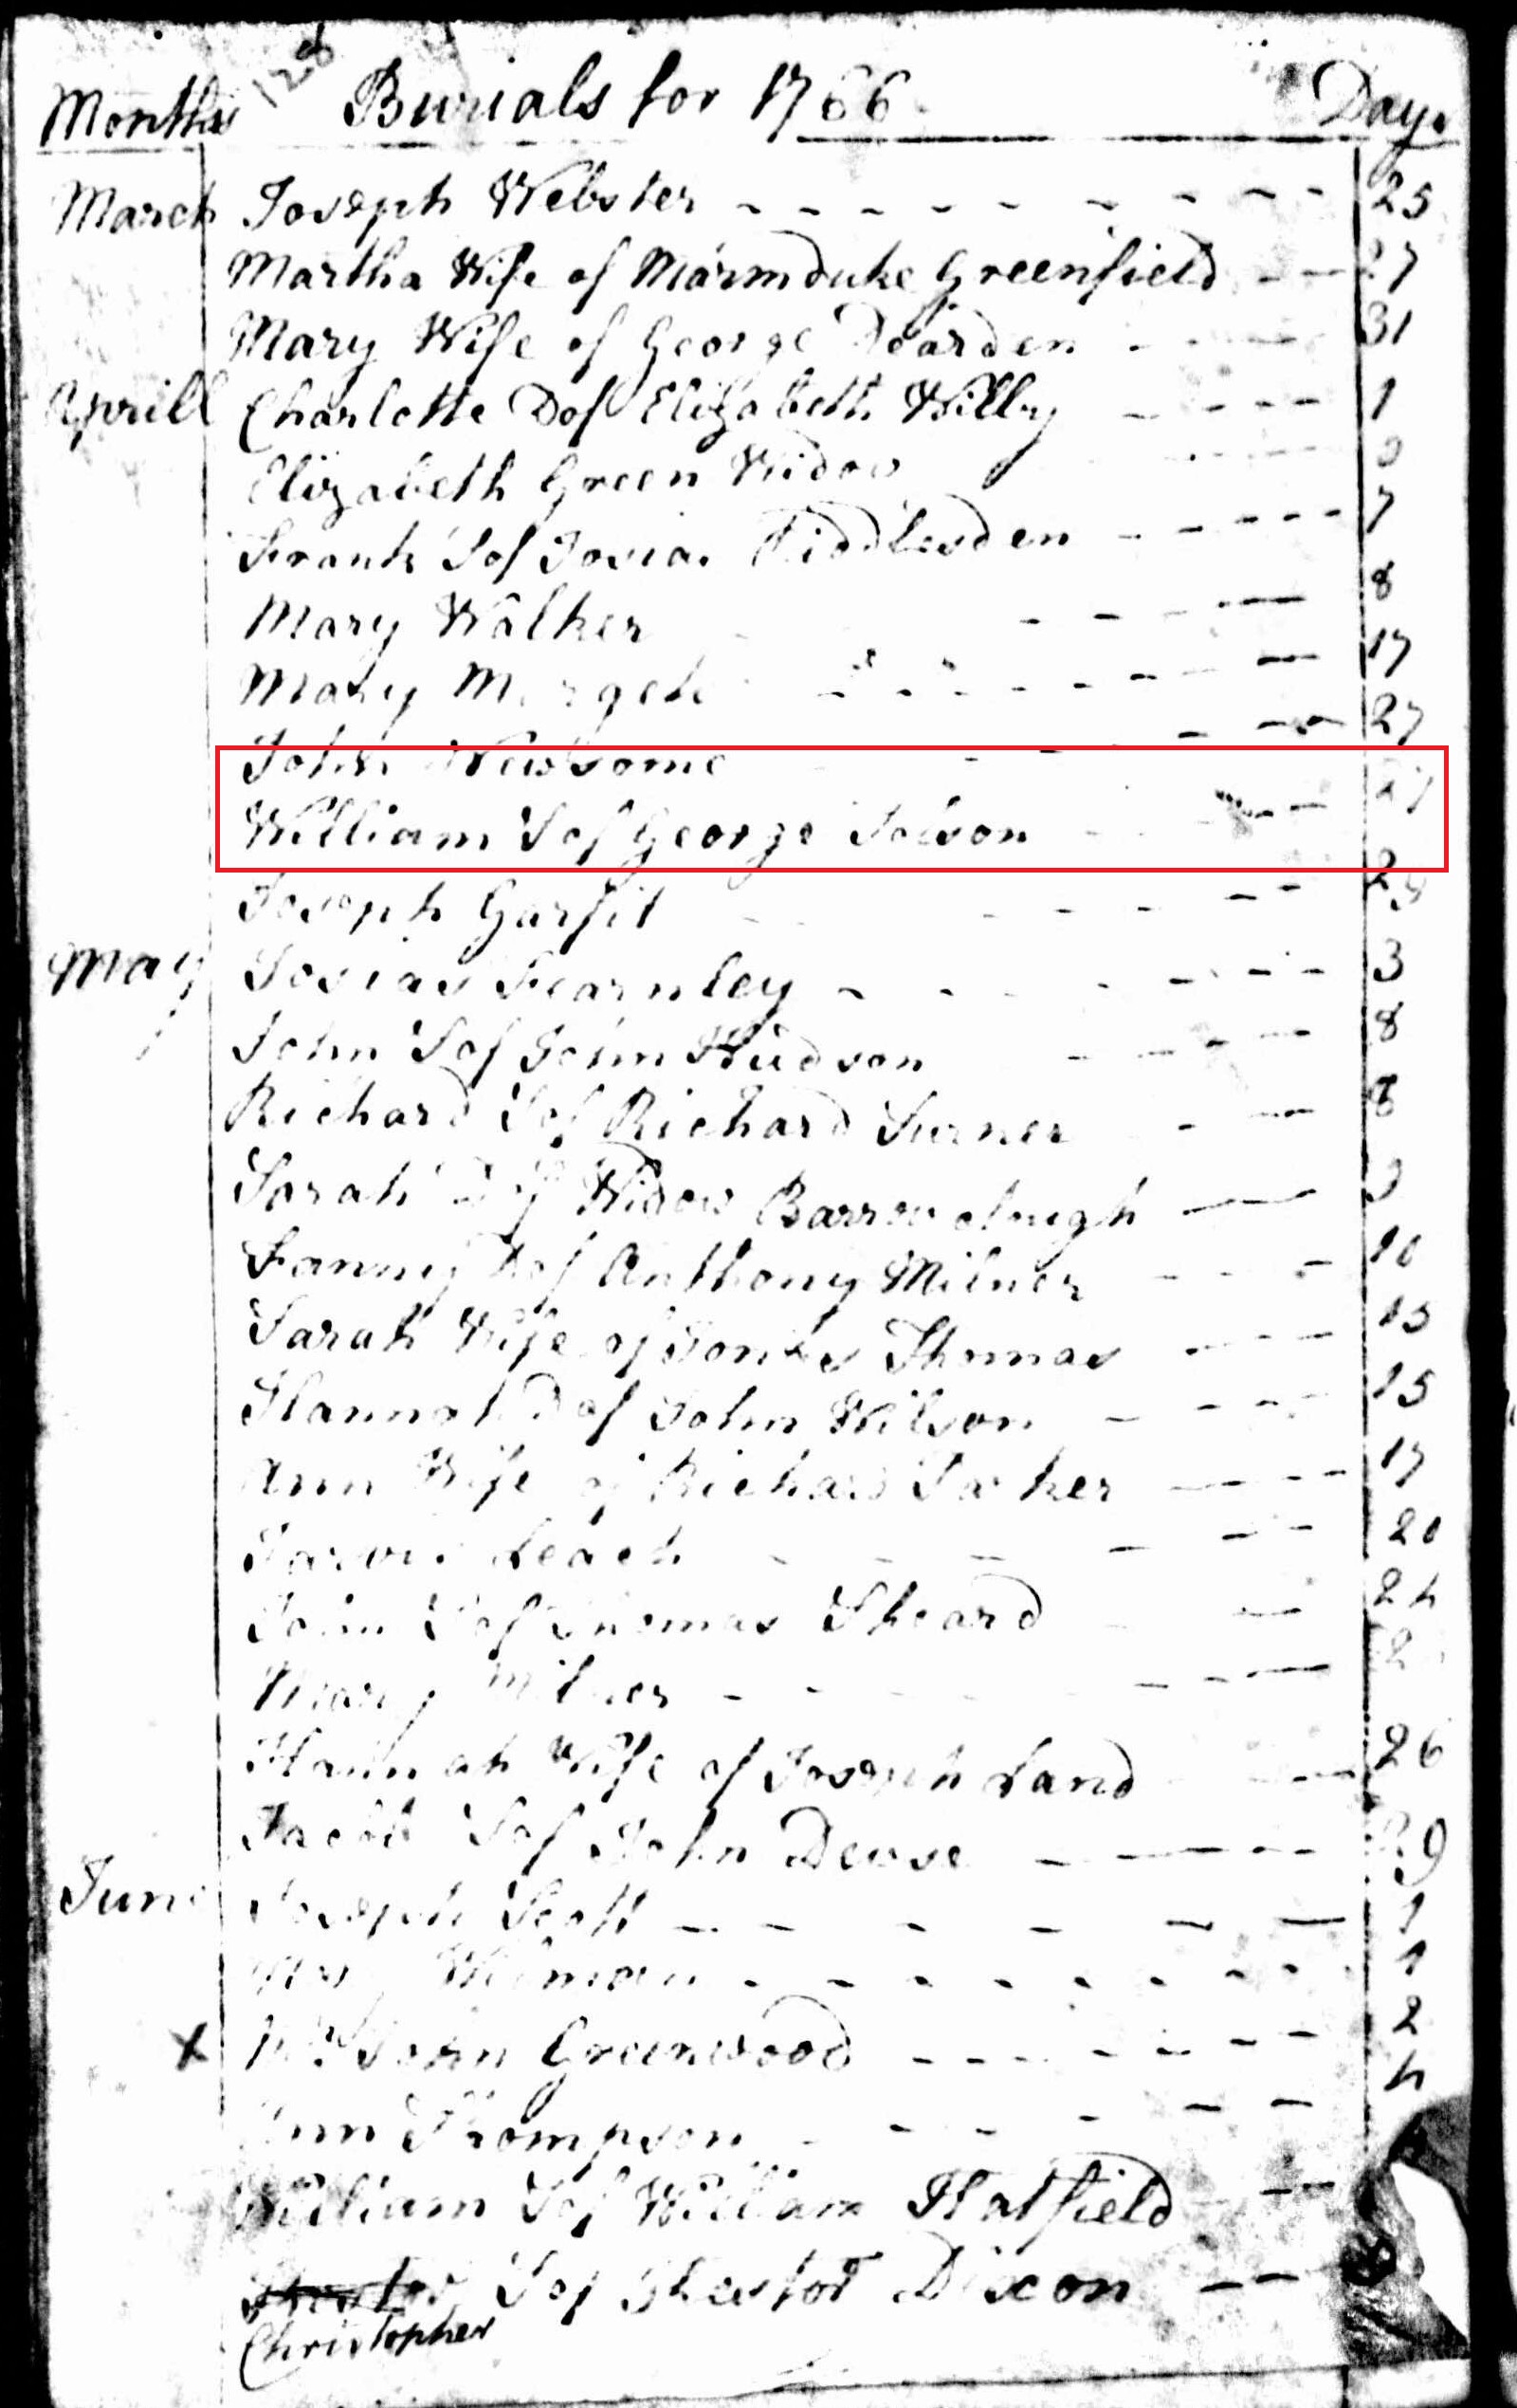 128
Months Burials for 1766 Day.
March Joseph Webster 25
Martha Wife of Marmduke Greenfield 27
Mary Wife of George Dearden 31
Aprill Charlotte D of Elizabeth Willby 1
Elizabeth Green Widow
Frank S of Josia. Fiddlesden 7
Mary Walker 8
Mary 17
John Newsome 27
William S of George Jolson 27
Joseph Garfit 29
May Josias Fearnley 3
John S of John Hudson 8
Richard S of Richard Turner 8
Sarah D of Widow Barrowclough 9
Fanny D of Anthony Milner 10
Sarah Wife of Thomas 15
Hannah D of John Wilson 15
Ann Wife of Richard 17
Leach 20
John S of Thomas Sheard 24
Mary Milner
Hannah Wife of Joseph Land 26
Jacob S of John Dewse 29
June Joseph Scott 1
1
x Mr John Greenwood 2
Ann Thompson 4
William S of William Hatfield
S of Dixon
Christopher